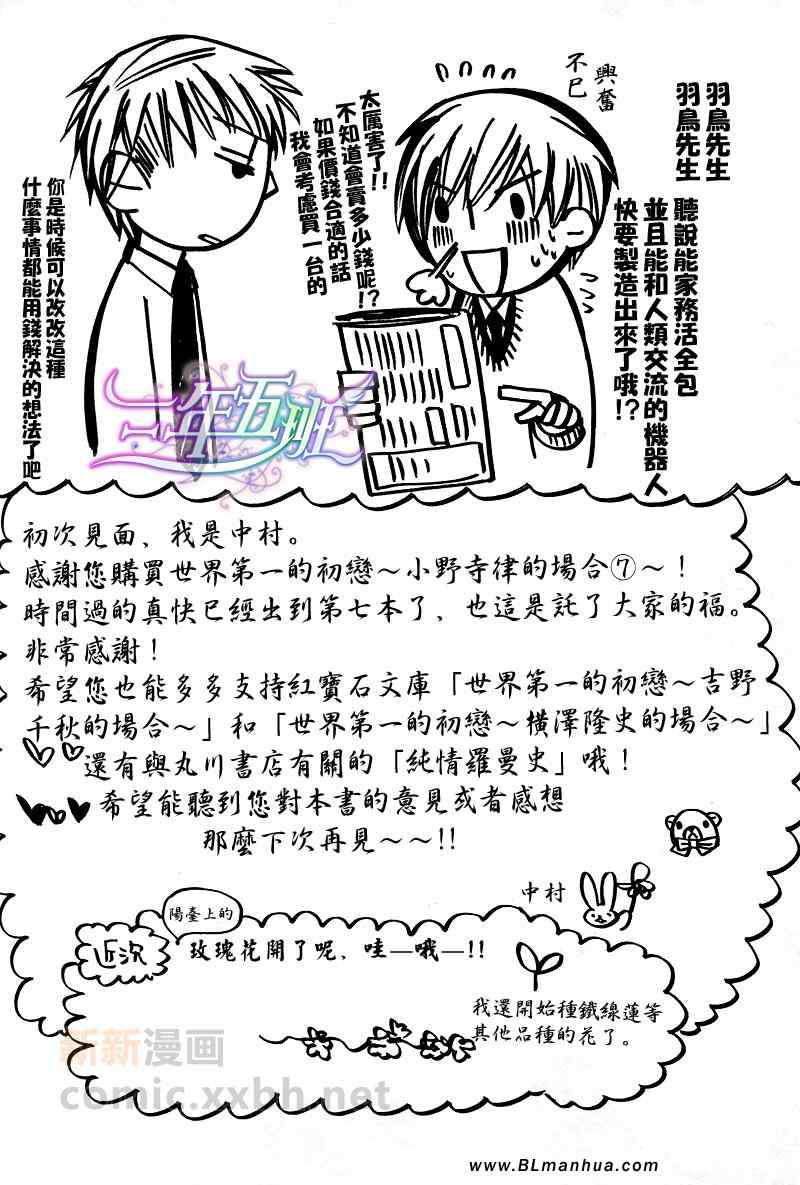 羽鳥先生
羽鳥先生
聽說能家務活全包
並且能和人類交流的機器人
快要製造出來了哦!?
興奮
不已
太厲害了!!
不知道會賣多少錢呢!?
如果價錢合適的話
我會考慮買一台的
你是時候可以改改這種
什麼事情都能用錢解決的想法了吧
二年五班
初次見面、我是中村。
感謝您購買世界第一的初戀～小野寺律的場合⑦～!
時間過的真快已經出到第七本了、也這是託了大家的福。
非常感謝!
希望您也能多多支持紅寶石文庫「世界第一的初戀～吉野
千秋的場合～」和「世界第一的初戀～橫澤隆史的場合～」
還有與丸川書店有關的「純情羅曼史」哦!
希望能聽到您對本書的意見或者感想
那麼下次再見～～!!
中村
陽臺上的
近況
玫瑰花開了呢、哇—哦—!!
我還開始種鐵線蓮等
其他品種的花了。
新新漫画
comic.xxbh.net
www.BLmanhua.com